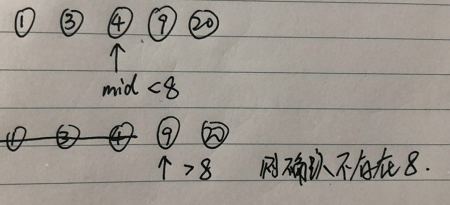 ① ③ ④ ⑨ ⑳
↑
mid <8
① ③ ④ ⑨ ⑳
↑ >8 则确认不存在8.